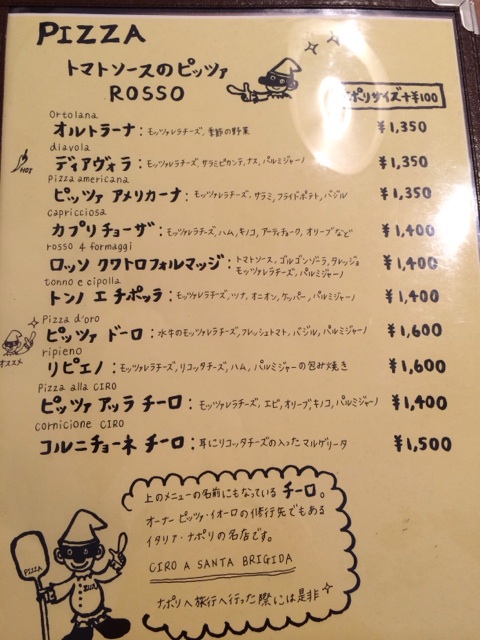 PIZZA
トマトソースのピッツァ
ROSSO
ポリサイズ+¥100
Ortolana
オルトラーナ：モッツァレラチーズ, 季節の野菜 ¥1,350
diavola
HOT ディアヴォラ：モッツァレラチーズ, サラミピカンテ, ナス, パルミジャーノ ¥1,350
Pizza americana
ピッツァ アメリカーナ：モッツァレラチーズ, サラミ, フライドポテト, バジル ¥1,350
capricciosa
カプリチョーザ：モッツァレラチーズ, ハム, キノコ, アーティチョーク, オリーブなど ¥1,400
rosso 4 formaggi
ロッソ クワトロフォルマッジ：トマトソース, ゴルゴンゾーラ, タレッジョ ¥1,400
モッツァレラチーズ, パルミジャーノ
tonno e cipolla
トンノ エ チポッラ：モッツァレラチーズ, ツナ, オニオン, ケッパー, パルミジャーノ ¥1,400
Pizza d'oro
ピッツァ ドーロ：水牛のモッツァレラチーズ, フレッシュトマト, バジル, パルミジャーノ ¥1,600
オススメ
ripieno
リピエノ：モッツァレラチーズ, リコッタチーズ, ハム, パルミジャーノの包み焼き ¥1,600
Pizza alla CIRO
ピッツァ アッラ チーロ：モッツァレラチーズ, エビ, オリーブ, キノコ, パルミジャーノ ¥1,400
cornicione CIRO
コルニチョーネ チーロ：耳にリコッタチーズの入ったマルゲリータ ¥1,500
上のメニューの名前にもなっている チーロ。
オーナー ピッツァ・イオーロの修行先でもある
イタリア・ナポリの名店です。
CIRO A SANTA BRIGIDA
ナポリへ旅行へ行った際には是非
PIZZA